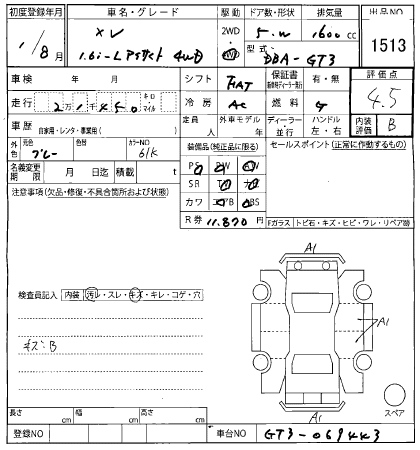 初度登録年月 車名・グレード 駆動 ドア数・形状 排気量 出品NO
1/8月 XV 2WD 5.W 1600cc 1513
1.6i-L アイサイト 4WD 4WD 型式 DBA-GT3
車検 年 月 シフト FAT 保証書 有・無 評価点
走行 2万1千450 キロ・マイル 冷房 AC 燃料 G 4.5
車歴 自家用・レンタ・事業用( ) 定員 人 外車モデル 年 ディーラー・並行 ハンドル 左・右 内装評価 B
外色 元色 グレー 色替 カラーNO 61K 装備品(純正品に限る) セールスポイント(正常に作動するもの)
名義変更期限 月 日迄 積載 t PS PW AW
注意事項(欠品・修復・不具合箇所および状態) SR TV ナビ
カワ エアB ABS
R券 11.870円 Fガラス トビ石・キズ・ヒビ・ワレ・リペア跡
A1
検査員記入 内装 汚レ・スレ・キズ・キレ・コゲ・穴
A1
キズ:B
スペア
長さ cm 幅 cm 高さ cm A1
登録NO 車台NO GT3-069443